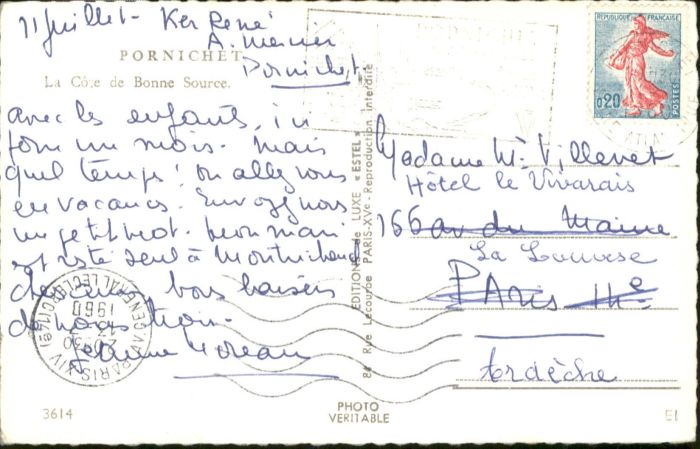 11 Juillet - Ker René
A. Menier
Pornichet.
PORNICHET
La Côte de Bonne Source.
avec les enfants, ici
pour un mois. Mais
quel temps! On allez vous
en vacances. Envoyez nous
un petit mot. Mon mari
est resté seul à
bons baisers
de nous trois.
Moreau
3614
PHOTO
VERITABLE
EDITIONS de LUXE « ESTEL »
84 Rue Lecourbe PARIS-XVe - Reproduction interdite
REPUBLIQUE FRANÇAISE
0,20
POSTES
PORNICHET
ATLA
PARIS XIV
AV. GENERAL LECLERC (14e)
1960
Madame M. Villenet
Hôtel le Vivarais
166 av du Maine
La Louvesc
PARIS 14e
Ardèche
EI